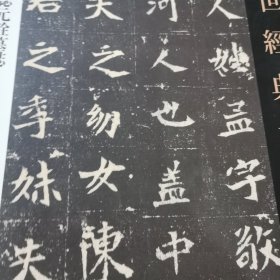 經典
人姓孟字敬
河人也蓋中
夫之幼女陳
君之季妹夫